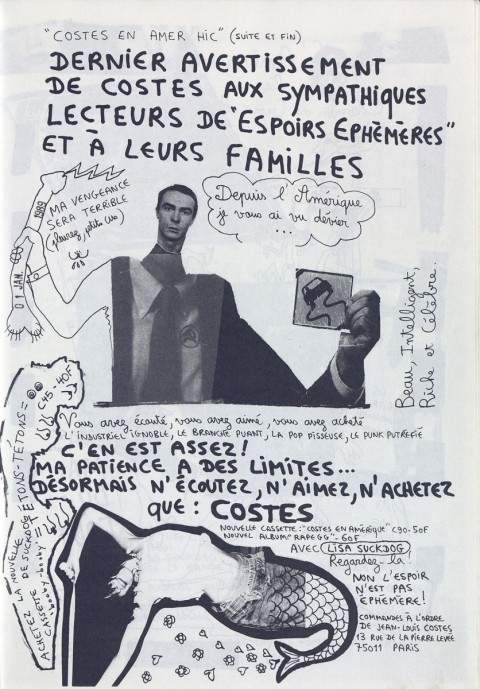 "COSTES EN AMER HIC" (SUITE ET FIN)
DERNIER AVERTISSEMENT
DE COSTES AUX SYMPATHIQUES
LECTEURS DE "ESPOIRS EPHÉMÈRES"
ET À LEURS FAMILLES
MA VENGEANCE
SERA TERRIBLE
01 JAN. 1989
Depuis l'Amérique
je vous ai vu dévier ...
Beau, Intelligent,
Riche et Célèbre.
Vous avez écouté, vous avez aimé, vous avez acheté
L'INDUSTRIEL IGNOBLE, LE BRANCHÉ PUANT, LA POP PISSEUSE, LE PUNK PUTREFIÉ
C'EN EST ASSEZ!
MA PATIENCE A DES LIMITES...
DÉSORMAIS N'ÉCOUTEZ, N'AIMEZ, N'ACHETEZ
QUE: COSTES
NOUVELLE CASSETTE: "COSTES EN AMÉRIQUE" C90-50F
NOUVEL ALBUM: "RAPEGG" - 60F
AVEC LISA SUCKDOG
Regardez-la!
NON L'ESPOIR
N'EST PAS
EPHÉMÈRE!
COMMANDES À L'ORDRE
DE JEAN-LOUIS COSTES
13 RUE DE LA PIERRE LEVÉE
75011 PARIS
ACHETEZ LA NOUVELLE
CASSETTE DE SUCKDOG
TÉTONS-TÉTONS=
C45-40F